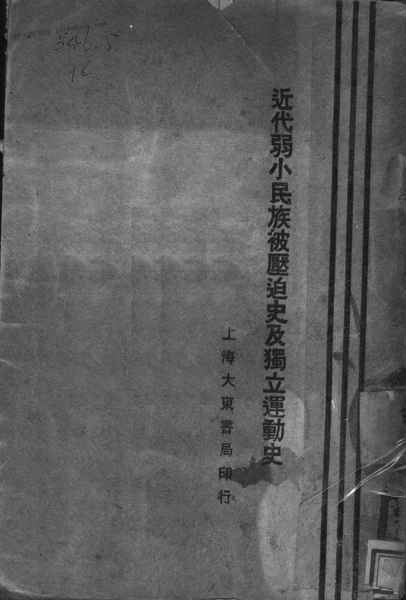 近代弱小民族被壓迫史及獨立運動史
上海大東書局印行